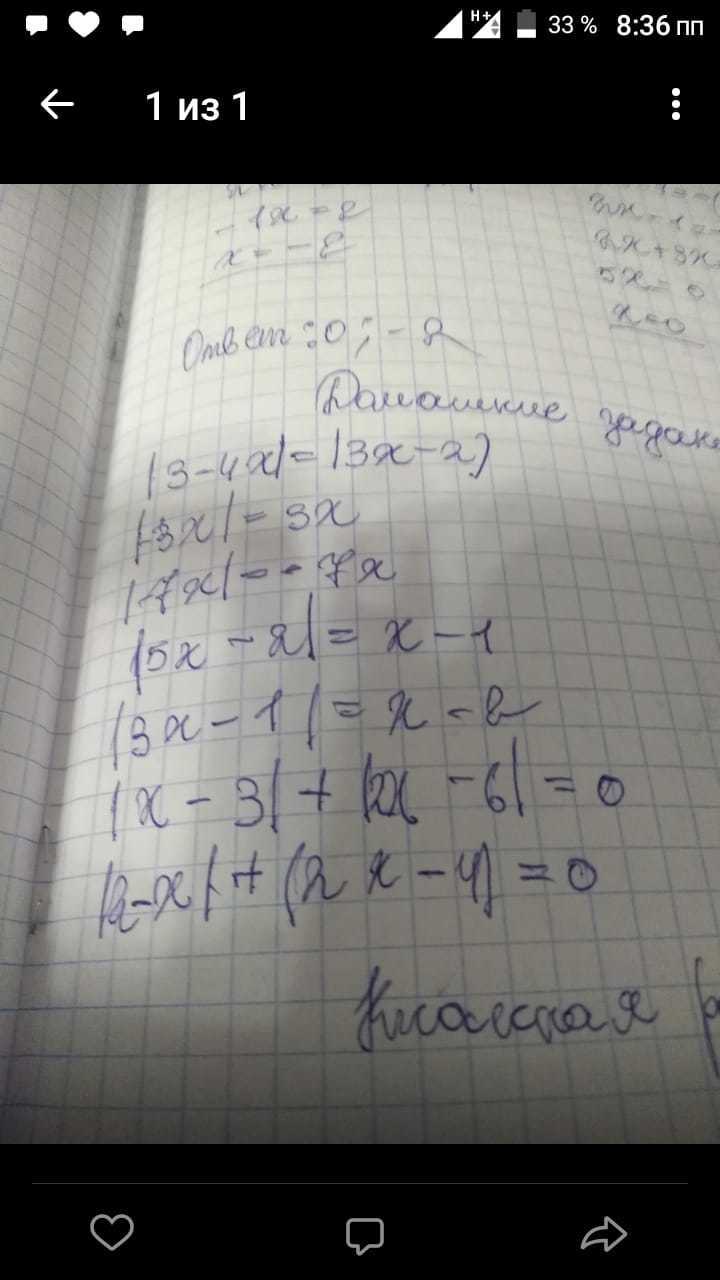 33 % 8:36 пп
1 из 1
- 1x = 2
x = - 2
5x = 0
x = 0
Ответ: 0; - 2
Домашние
|3-4x| = |3x-2|
|3x| = 3x
|7x| = - 7x
|5x - 2| = x - 1
|3x - 1| = x - 2
|x - 3| + |2x - 6| = 0
|2-x| + |2x - 4| = 0
Классная